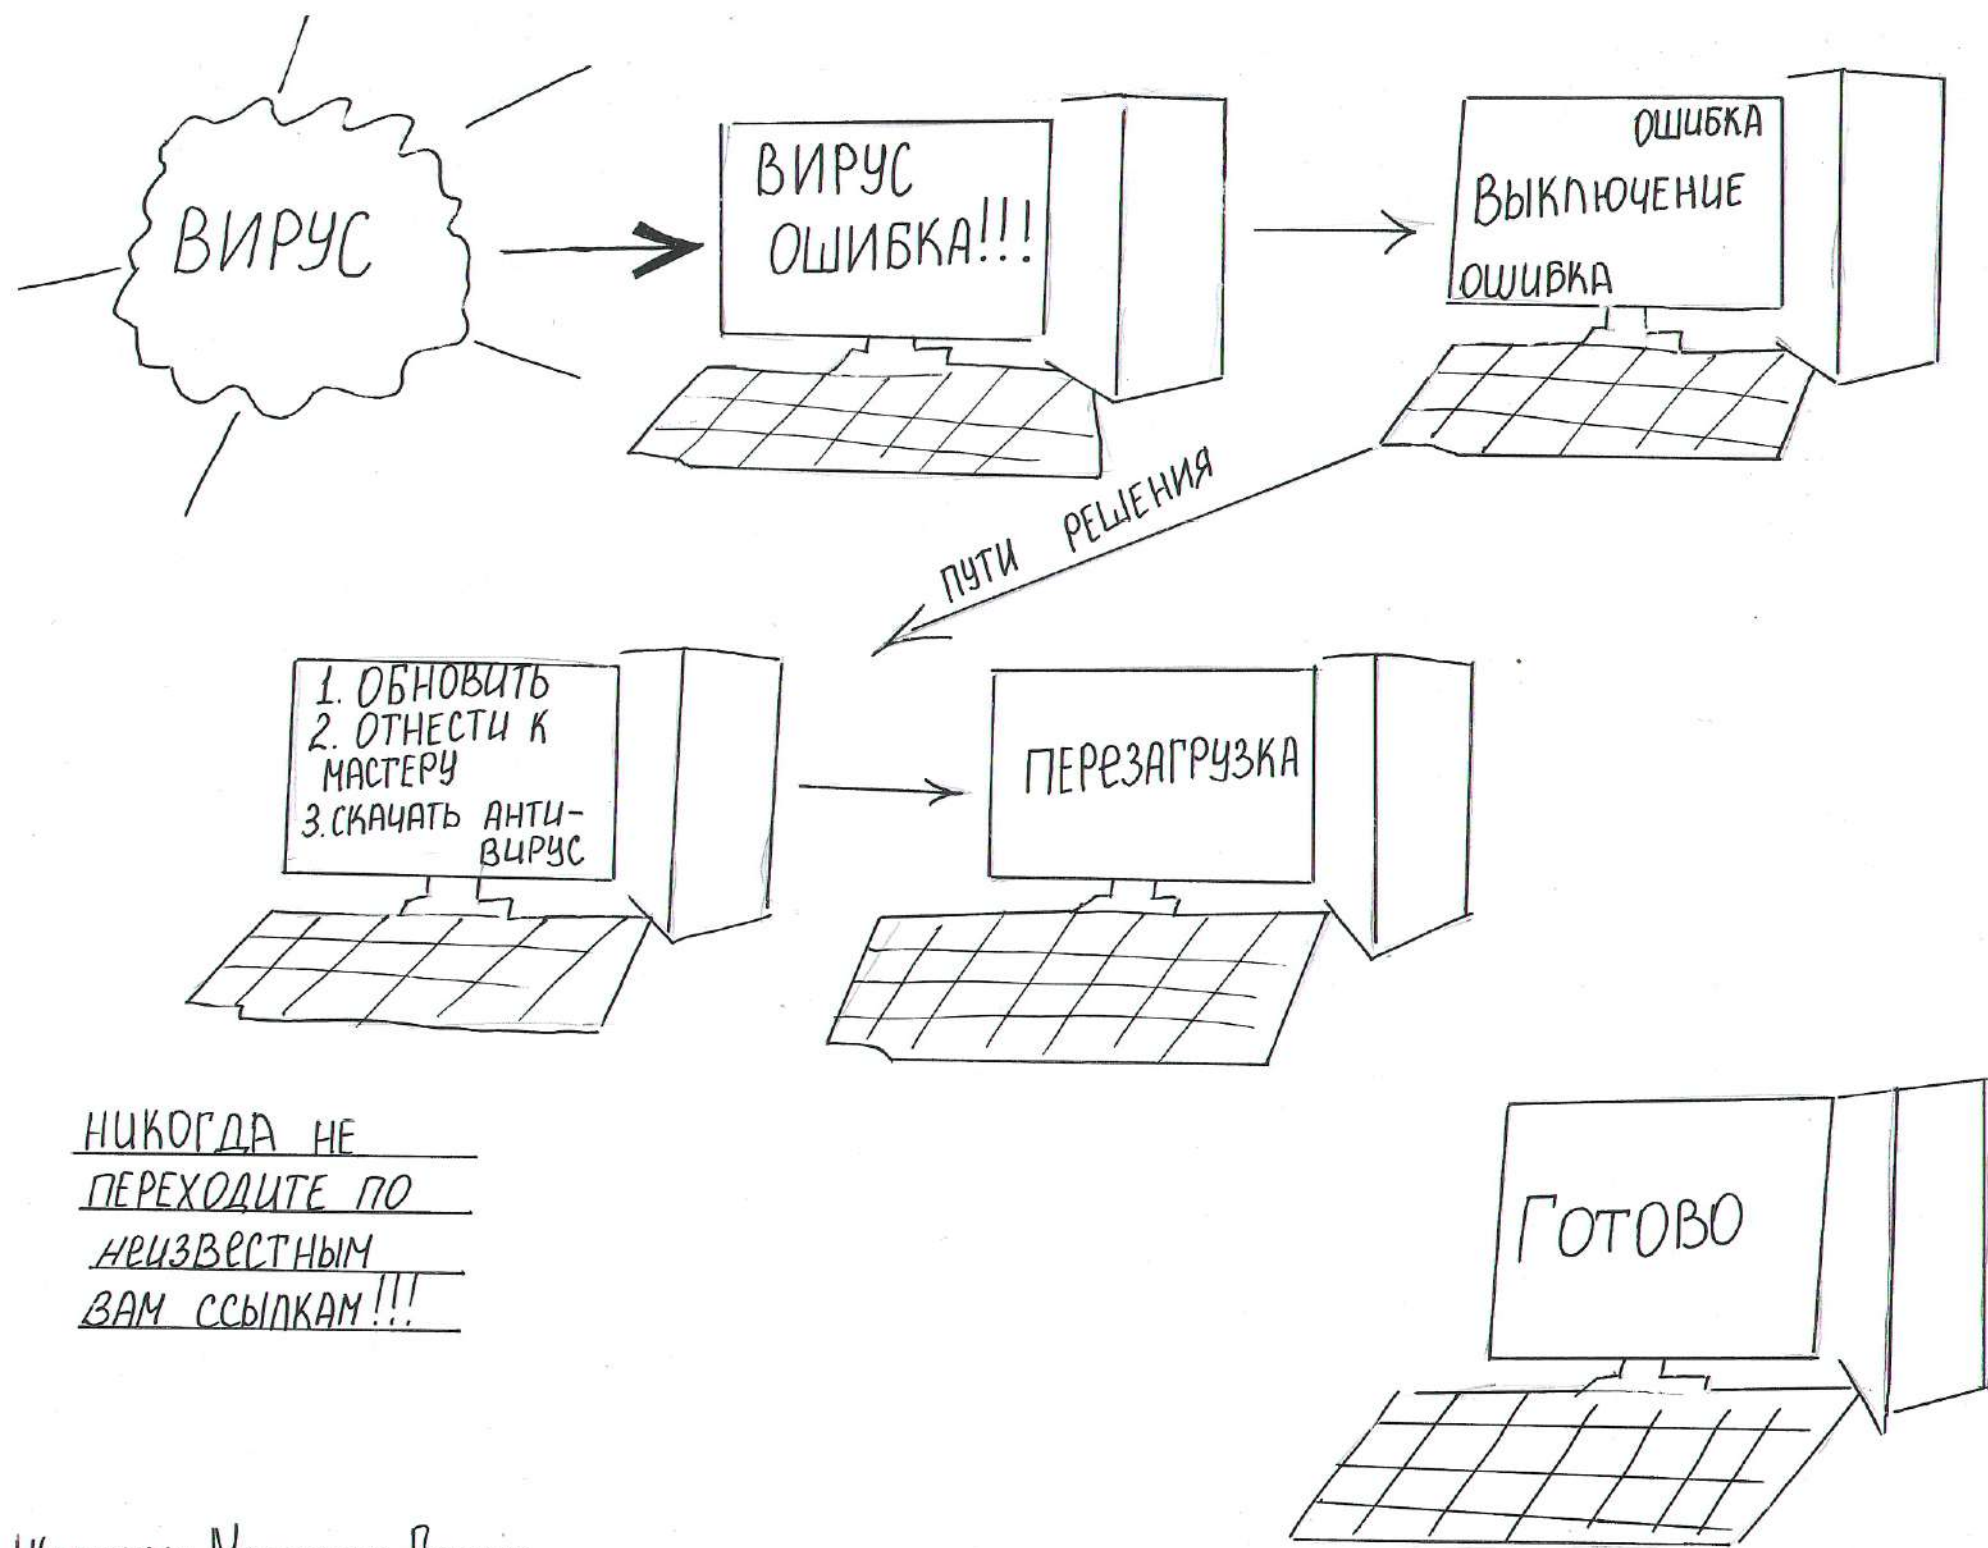 ВИРУС
ВИРУС
ОШИБКА!!!
ОШИБКА
ВЫКЛЮЧЕНИЕ
ОШИБКА
ПУТИ РЕШЕНИЯ
1. ОБНОВИТЬ
2. ОТНЕСТИ К
МАСТЕРУ
3. СКАЧАТЬ АНТИ-
ВИРУС
ПЕРЕЗАГРУЗКА
НИКОГДА НЕ
ПЕРЕХОДИТЕ ПО
НЕИЗВЕСТНЫМ
ВАМ ССЫЛКАМ!!!
ГОТОВО